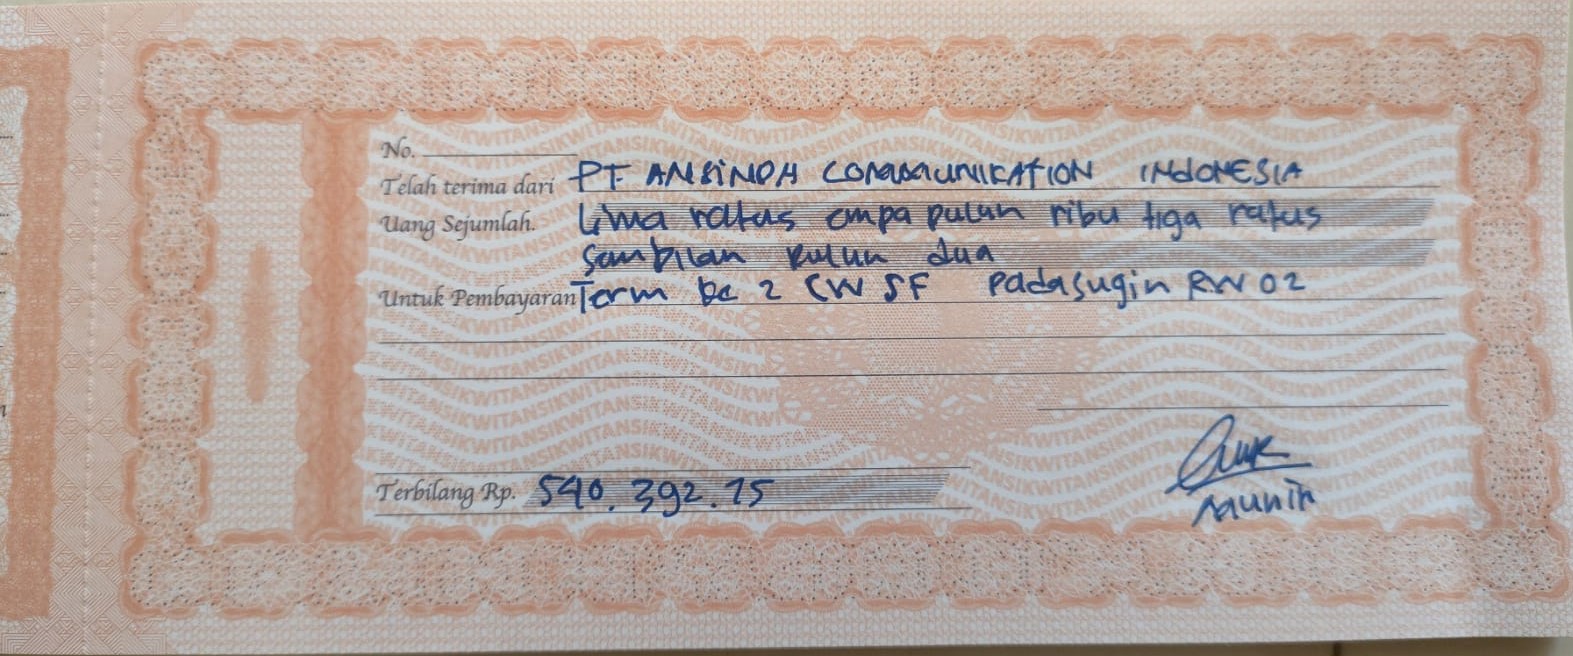 No.
Telah terima dari PT. ANSINDA COMMUNIKATION INdONESIA
Uang Sejumlah. Lima ratus empa puluh ribu tiga ratus
Sambilan puluh dua
Untuk Pembayaran Term ke 2 CW SF Padasugin RW 02
Terbilang Rp. 540.392.75
Munir